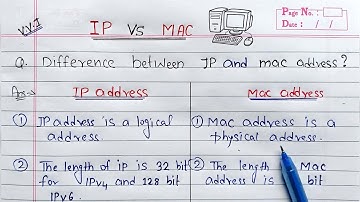 V.V.I
IP VS MAC
Page No.:
Date: / /
Q. Difference between IP and mac address?
Ans:-
IP address
① IP address is a logical
address.
② The length of iP is 32 bit
for IPv4 and 128 bit
IPv6.
Mac address
① Mac address is a
physical address.
② The length Mac
address is bit